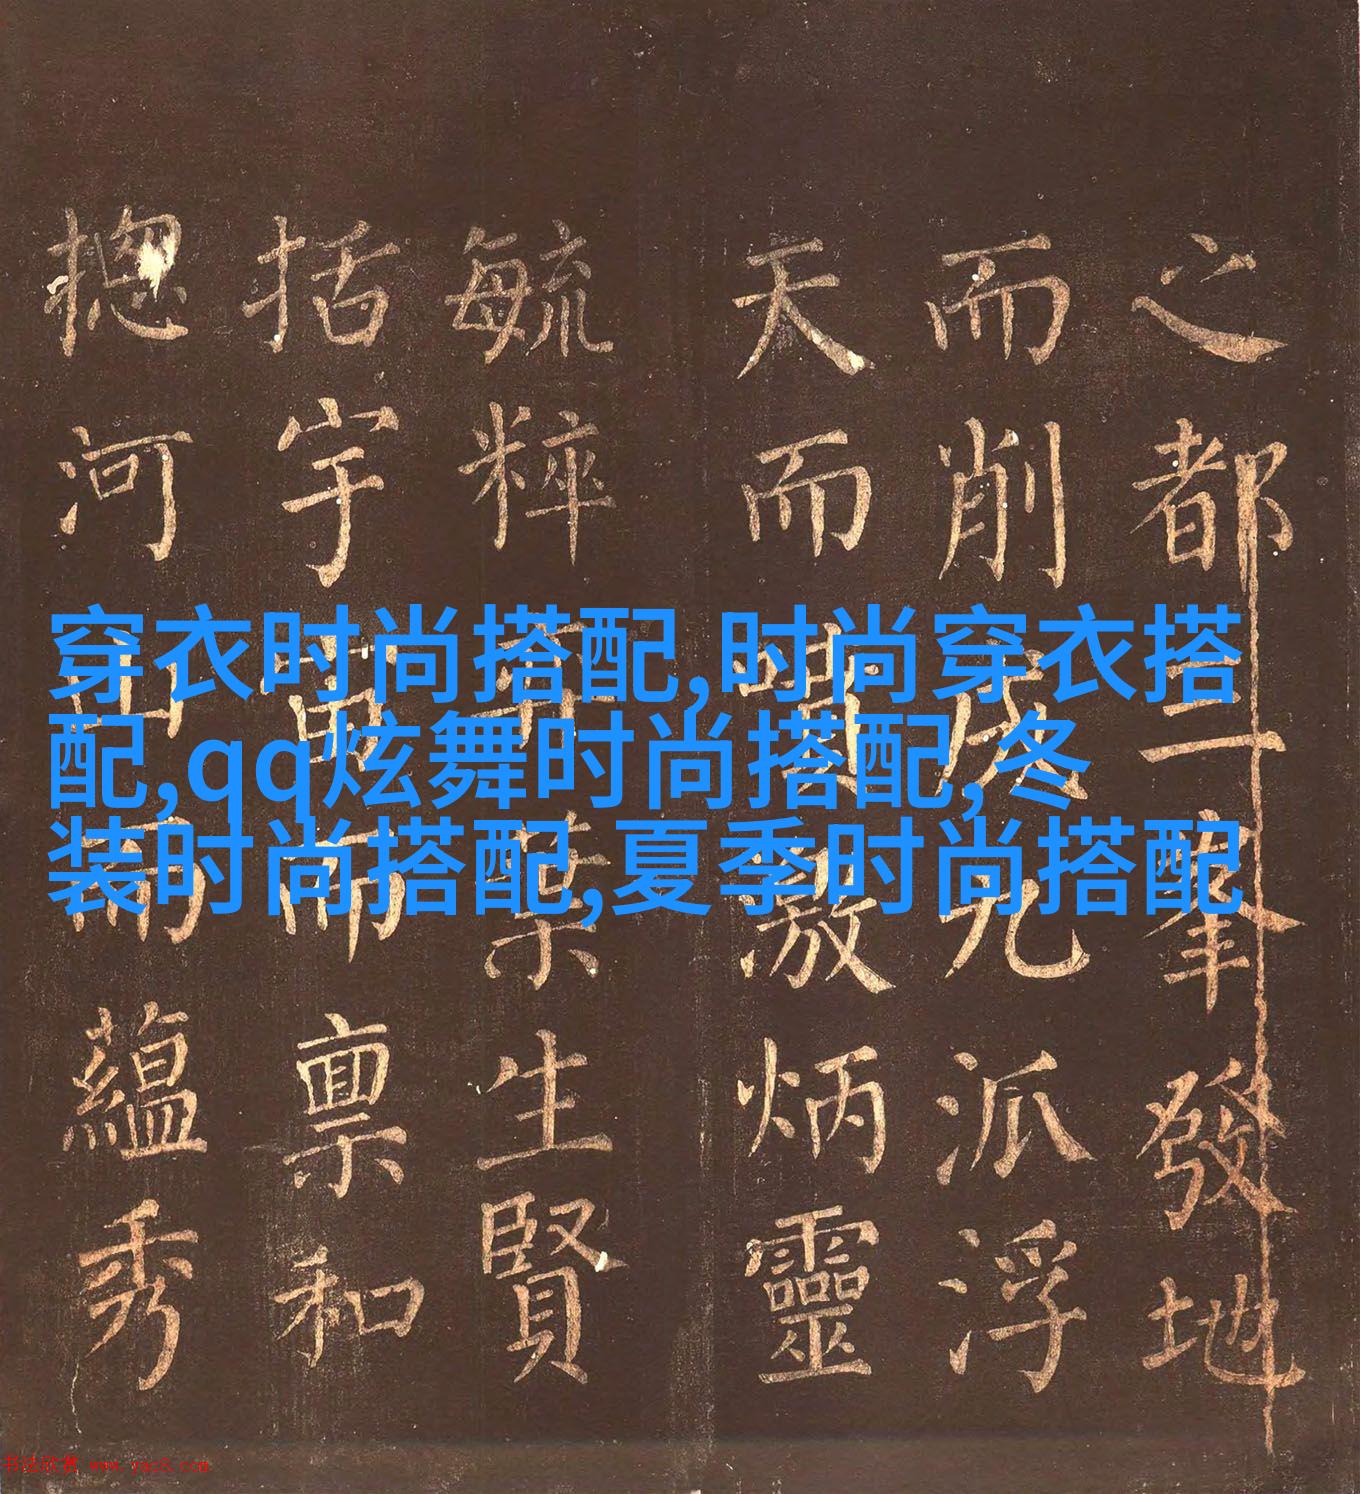 穿衣时尚搭配,时尚穿衣搭
配,qq炫舞时尚搭配,冬
装时尚搭配,夏季时尚搭配
之都三峯發地
而削成九派浮
天而噴激炳靈
毓粹 葉生賢
括宇宙而禀和
揔河山而蘊秀
书法欣赏 www.yac8.com